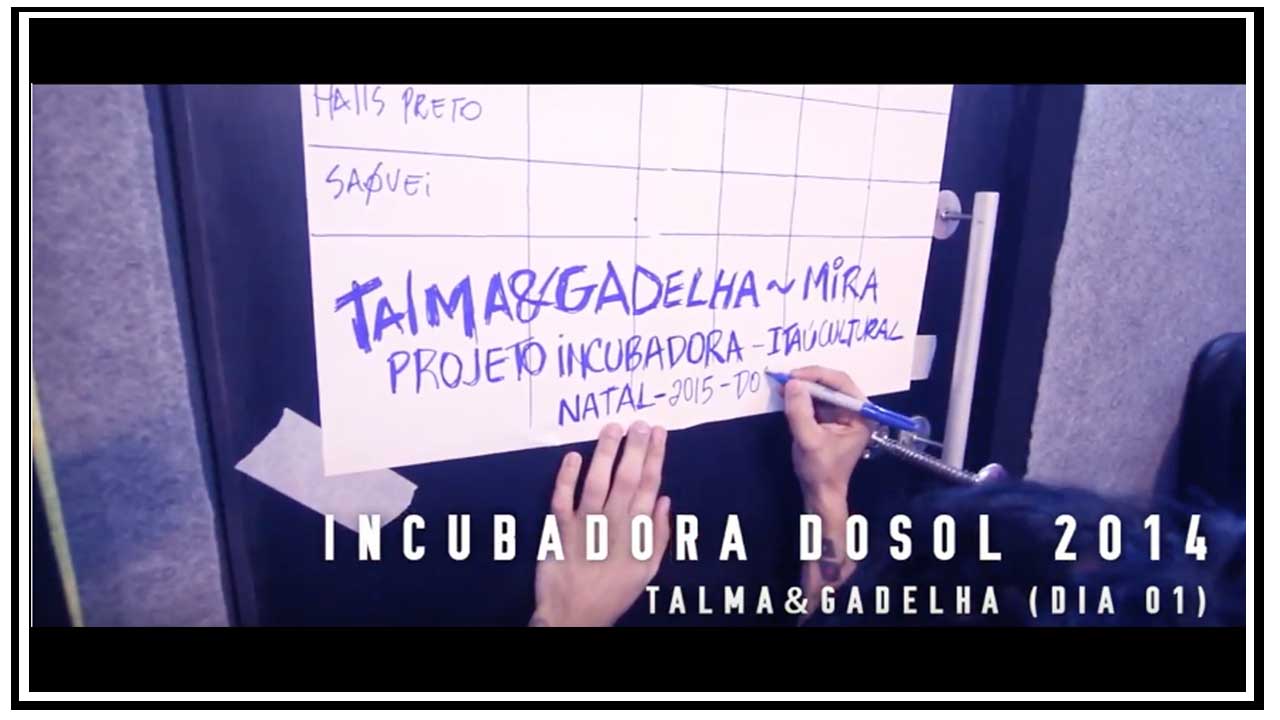 HAllS PRETO
SAØVEi
TAlMA&GADELHA ~ MiRA
PROJETO iNCUBADORA - ITAÚ CULTURAL
NATAL - 2015 - DO
INCUBADORA DOSOL 2014
TALMA&GADELHA (DIA 01)